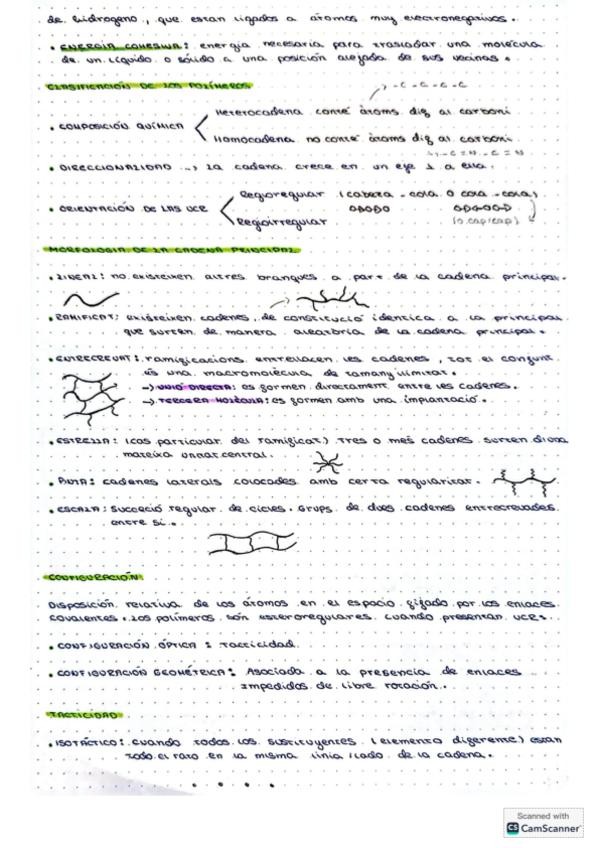 de hidrogeno, que estan ligados a átomos muy electronegativos.
• ENERGÍA COHESIVA: energía necesaria para trasladar una molécula
de un líquido o sólido a una posición alejada de sus vecinas.
CLASIFICACIÓN DE LOS POLÍMEROS
-C-C-C-C
Heterocadena conté àtoms dif al carboni
• COMPOSICIÓN QUÍMICA
Homocadena no conté àtoms dif al carboni
• DIRECCIONALIDAD → la cadena crece en un eje ⊥ a ella.
Regioregular (cabeza-cola o cola-cola)
• ORIENTACIÓN DE LAS UCR
Regioirregular (o cap/cap)
MORFOLOGIA DE LA CADENA PRINCIPAL
• LINEAL: no existeixen altres branques a part de la cadena principal.
• RAMIFICAT: existeixen cadenes, de constitució identica a la principal
que surten de manera aleatòria de la cadena principal.
• ENTRECREUAT: ramificacions entrellacen les cadenes, tot el conjunt
és una macromolècula de tamany il·limitat.
→ UNIÓ DIRECTA: es formen directament entre les cadenes.
→ TERCERA MOLÈCULA: es formen amb una implantació.
• ESTRELLA: (cas particular del ramificat) Tres o més cadenes surten d'una
mateixa unitat central.
• PINTA: cadenes laterals colocades amb certa regularitat.
• ESCALA: Successió regular de cicles. Grups de dues cadenes entrecreuades
entre sí.
CONFIGURACIÓN
Disposición relativa de los átomos en el espacio fijado por los enlaces
covalentes. Los polímeros son esteroregulares cuando presentan UCRs.
• CONFIGURACIÓN ÓPTICA: Tacticidad
• CONFIGURACIÓN GEOMÉTRICA: Asociada a la presencia de enlaces
impedidos de libre rotación.
TACTICIDAD
• ISOTÁCTICO: Cuando todos los sustituyentes (elemento diferente) estan
todo el rato en la misma linia/lado de la cadena.
Scanned with
CS CamScanner